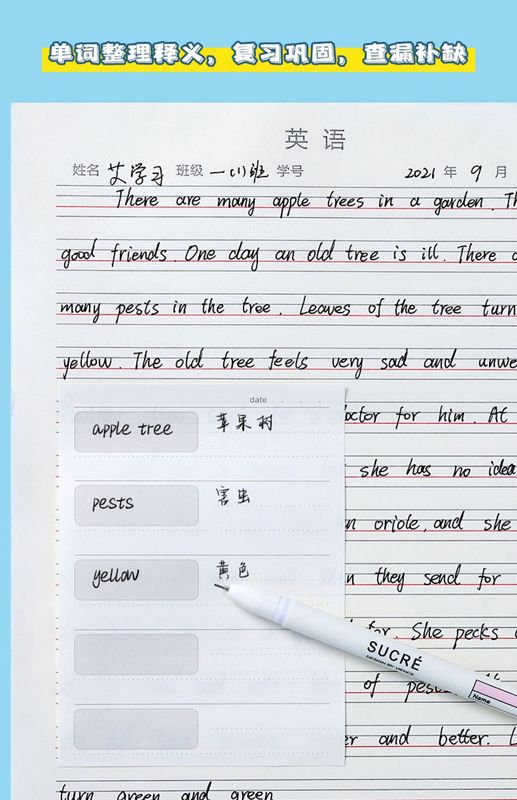 单词整理释义，复习巩固，查漏补缺
英语
姓名 艾学习 班级 一(1)班 学号 2021 年 9 月
There are many apple trees in a garden. Th
good friends. One day an old tree is ill. There a
many pests in the tree. Leaves of the tree turn
yellow. The old tree feels very sad and unwe
date
doctor for him. At
apple tree 苹果树
she has no idea
pests 害虫
oriole, and she
yellow 黄色
they send for
for. She pecks
SUCRÉ
of pests
Name
and better. L
turn green and green